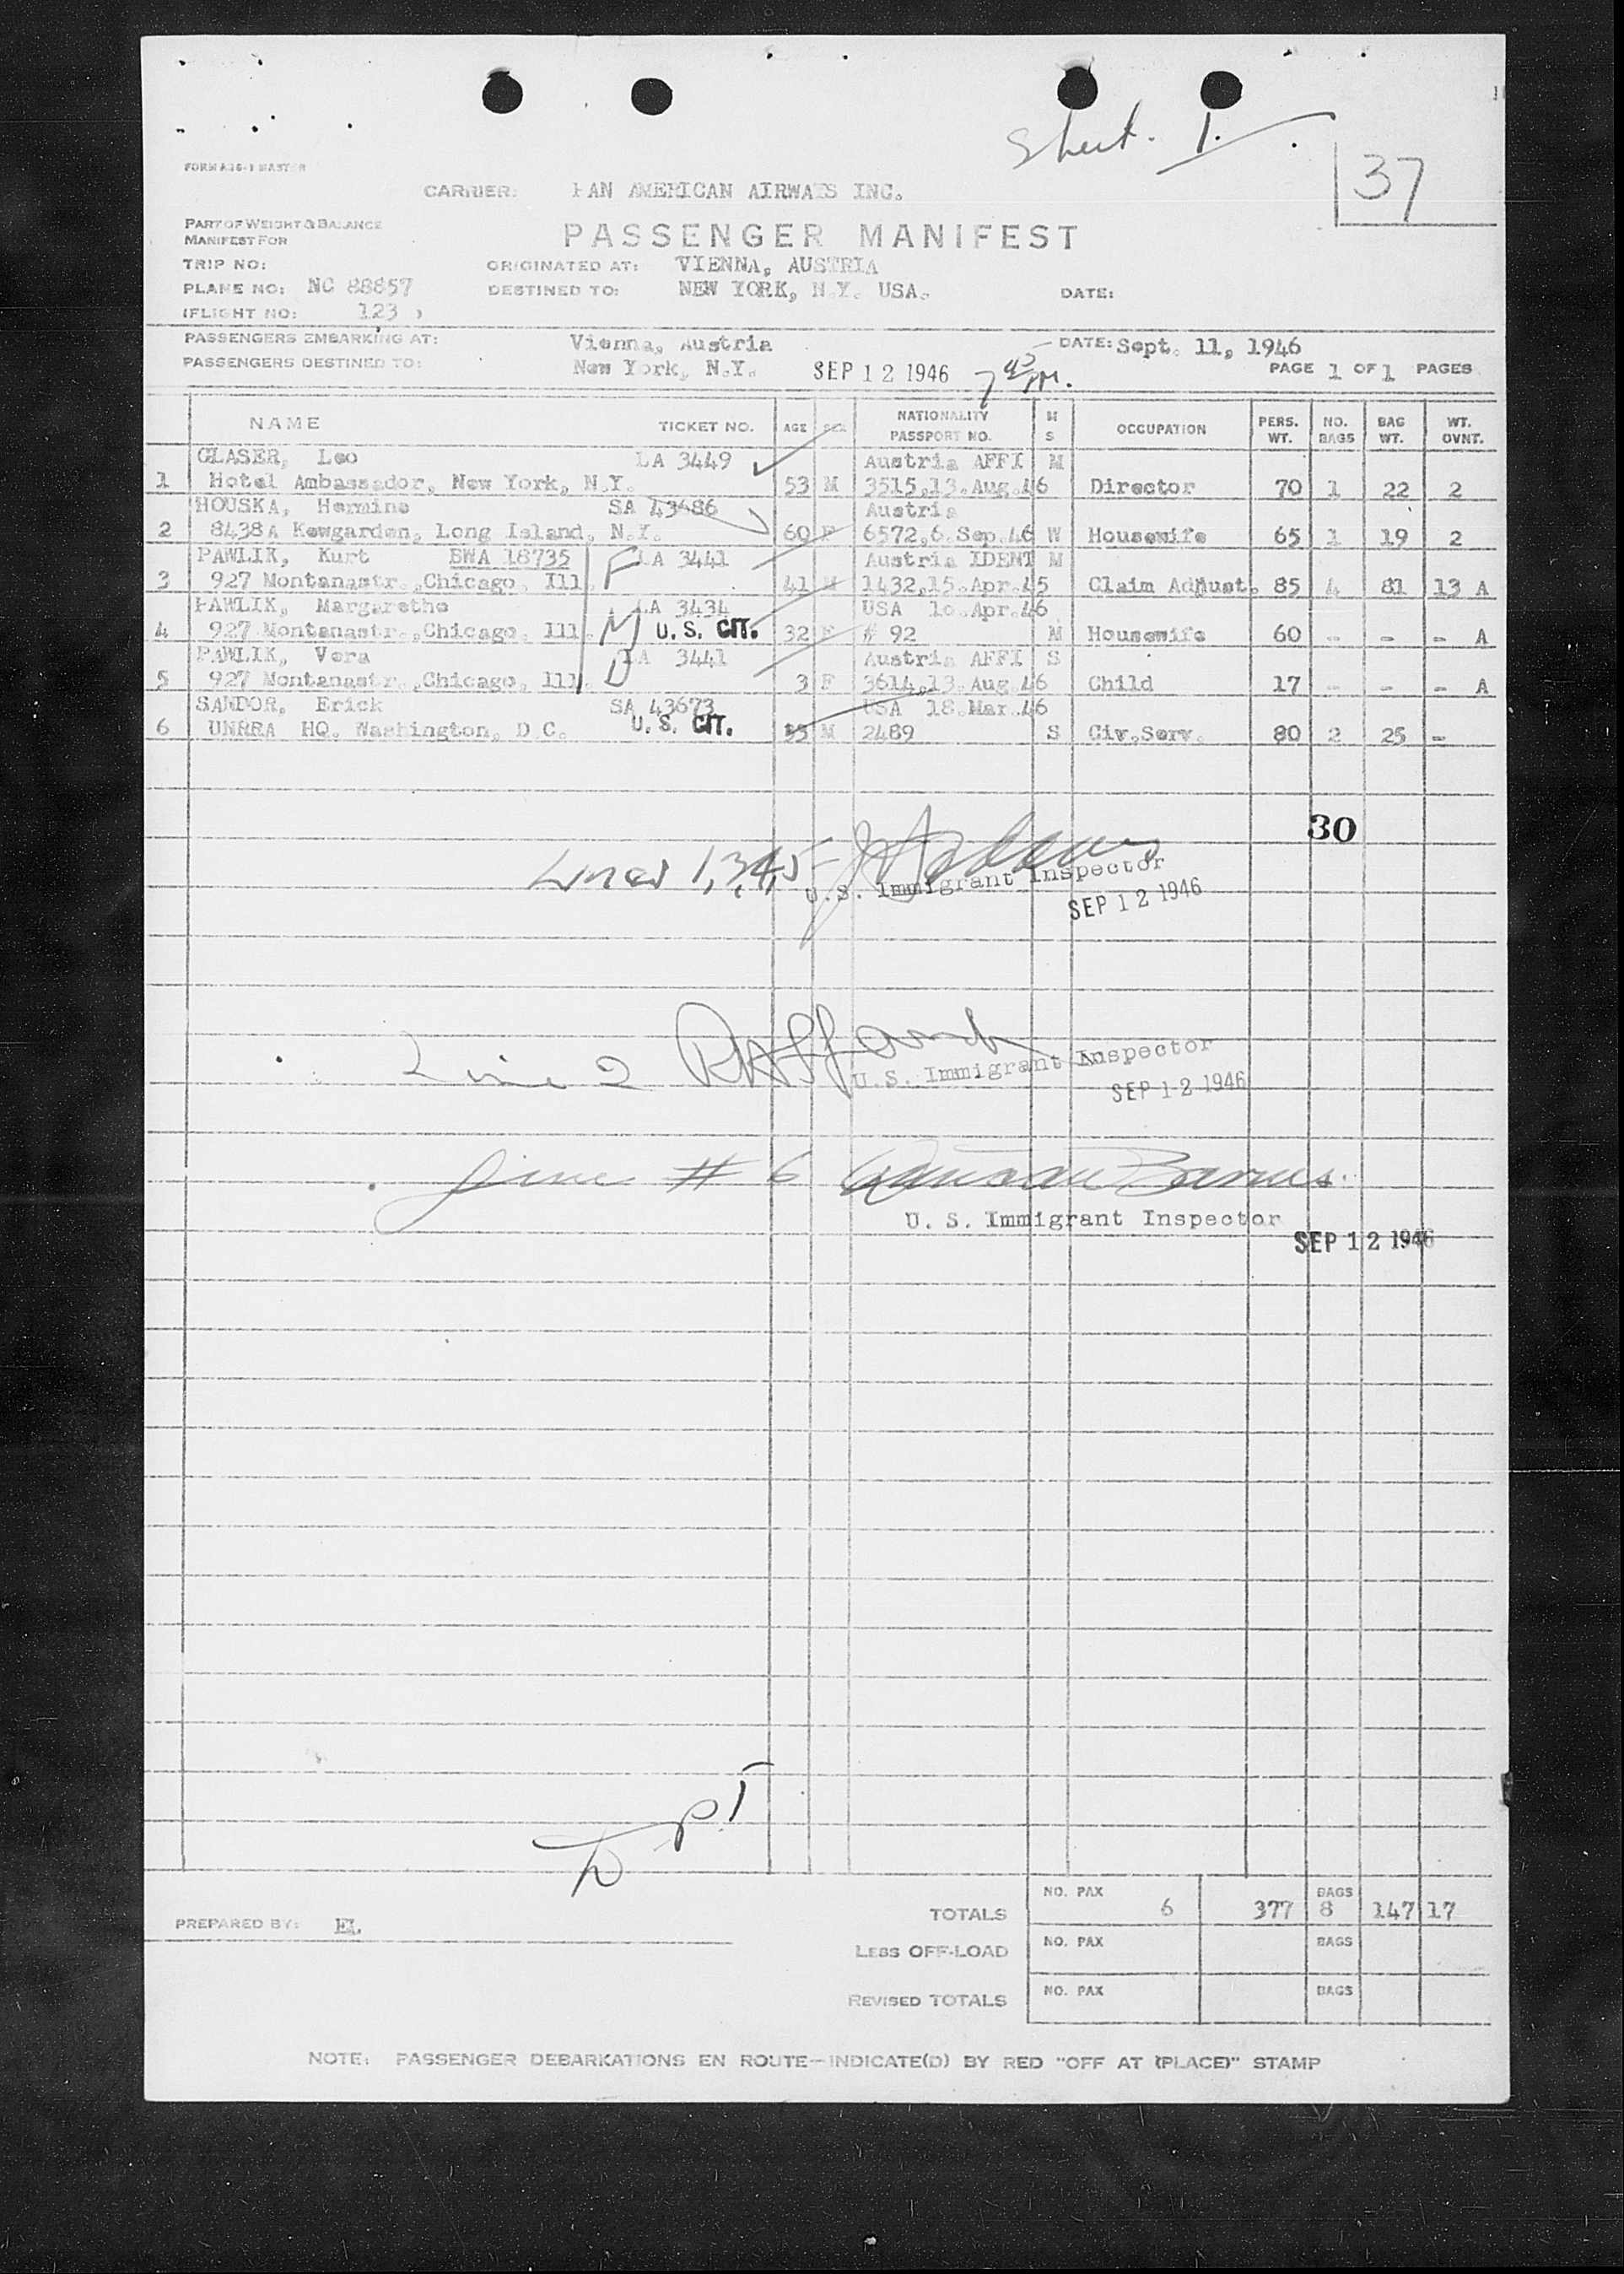 Sheet. 1.
37
FORM A36-1 MASTER
CARRIER: PAN AMERICAN AIRWAYS INC.
PART OF WEIGHT & BALANCE
MANIFEST FOR
PASSENGER MANIFEST
TRIP NO: ORIGINATED AT: VIENNA, AUSTRIA
PLANE NO: NC 88857 DESTINED TO: NEW YORK, N.Y. USA. DATE:
(FLIGHT NO: 123 )
PASSENGERS EMBARKING AT: Vienna, Austria DATE: Sept. 11, 1946
PASSENGERS DESTINED TO: New York, N.Y. SEP 12 1946 PAGE 1 OF 1 PAGES
NAME TICKET NO. AGE SEX NATIONALITY PASSPORT NO. M S OCCUPATION PERS. WT. NO. BAGS BAG WT. WT. OVNT.
GLASER, Leo LA 3449 Austria AFFI M
1 Hotel Ambassador, New York, N.Y. 53 M 3515,13.Aug.46 Director 70 1 22 2
HOUSKA, Hermine SA 43486 Austria
2 8438A Kewgarden, Long Island, N.Y. 60 F 6572,6.Sep.46 W Housewife 65 1 19 2
PAWLIK, Kurt BWA 18735 LA 3441 Austria IDENT M
3 927 Montanastr.,Chicago, Ill. F 41 M 1432,15.Apr.45 Claim Adjust. 85 4 81 13 A
PAWLIK, Margarethe LA 3434 USA 16.Apr.46
4 927 Montanastr.,Chicago, Ill. M U. S. CIT. 32 F # 92 M Housewife 60 - - - A
PAWLIK, Vera LA 3441 Austria AFFI S
5 927 Montanastr.,Chicago, Ill. D 3 F 3614,13.Aug.46 Child 17 - - - A
SANDOR, Erick SA 43673 USA 18.Mar.46
6 UNRRA HQ. Washington, D C. U. S. CIT. 35 M 2489 S Civ.Serv. 80 2 25 -
30
Lines 1,3,4,5
U.S. Immigrant Inspector
SEP 12 1946
Line 2
U.S. Immigrant Inspector
SEP 12 1946
Line # 6
U. S. Immigrant Inspector
SEP 12 1946
TOTALS NO. PAX 6 377 BAGS 8 147 17
PREPARED BY: EL.
LESS OFF-LOAD NO. PAX BAGS
REVISED TOTALS NO. PAX BAGS
NOTE: PASSENGER DEBARKATIONS EN ROUTE—INDICATE(D) BY RED "OFF AT (PLACE)" STAMP